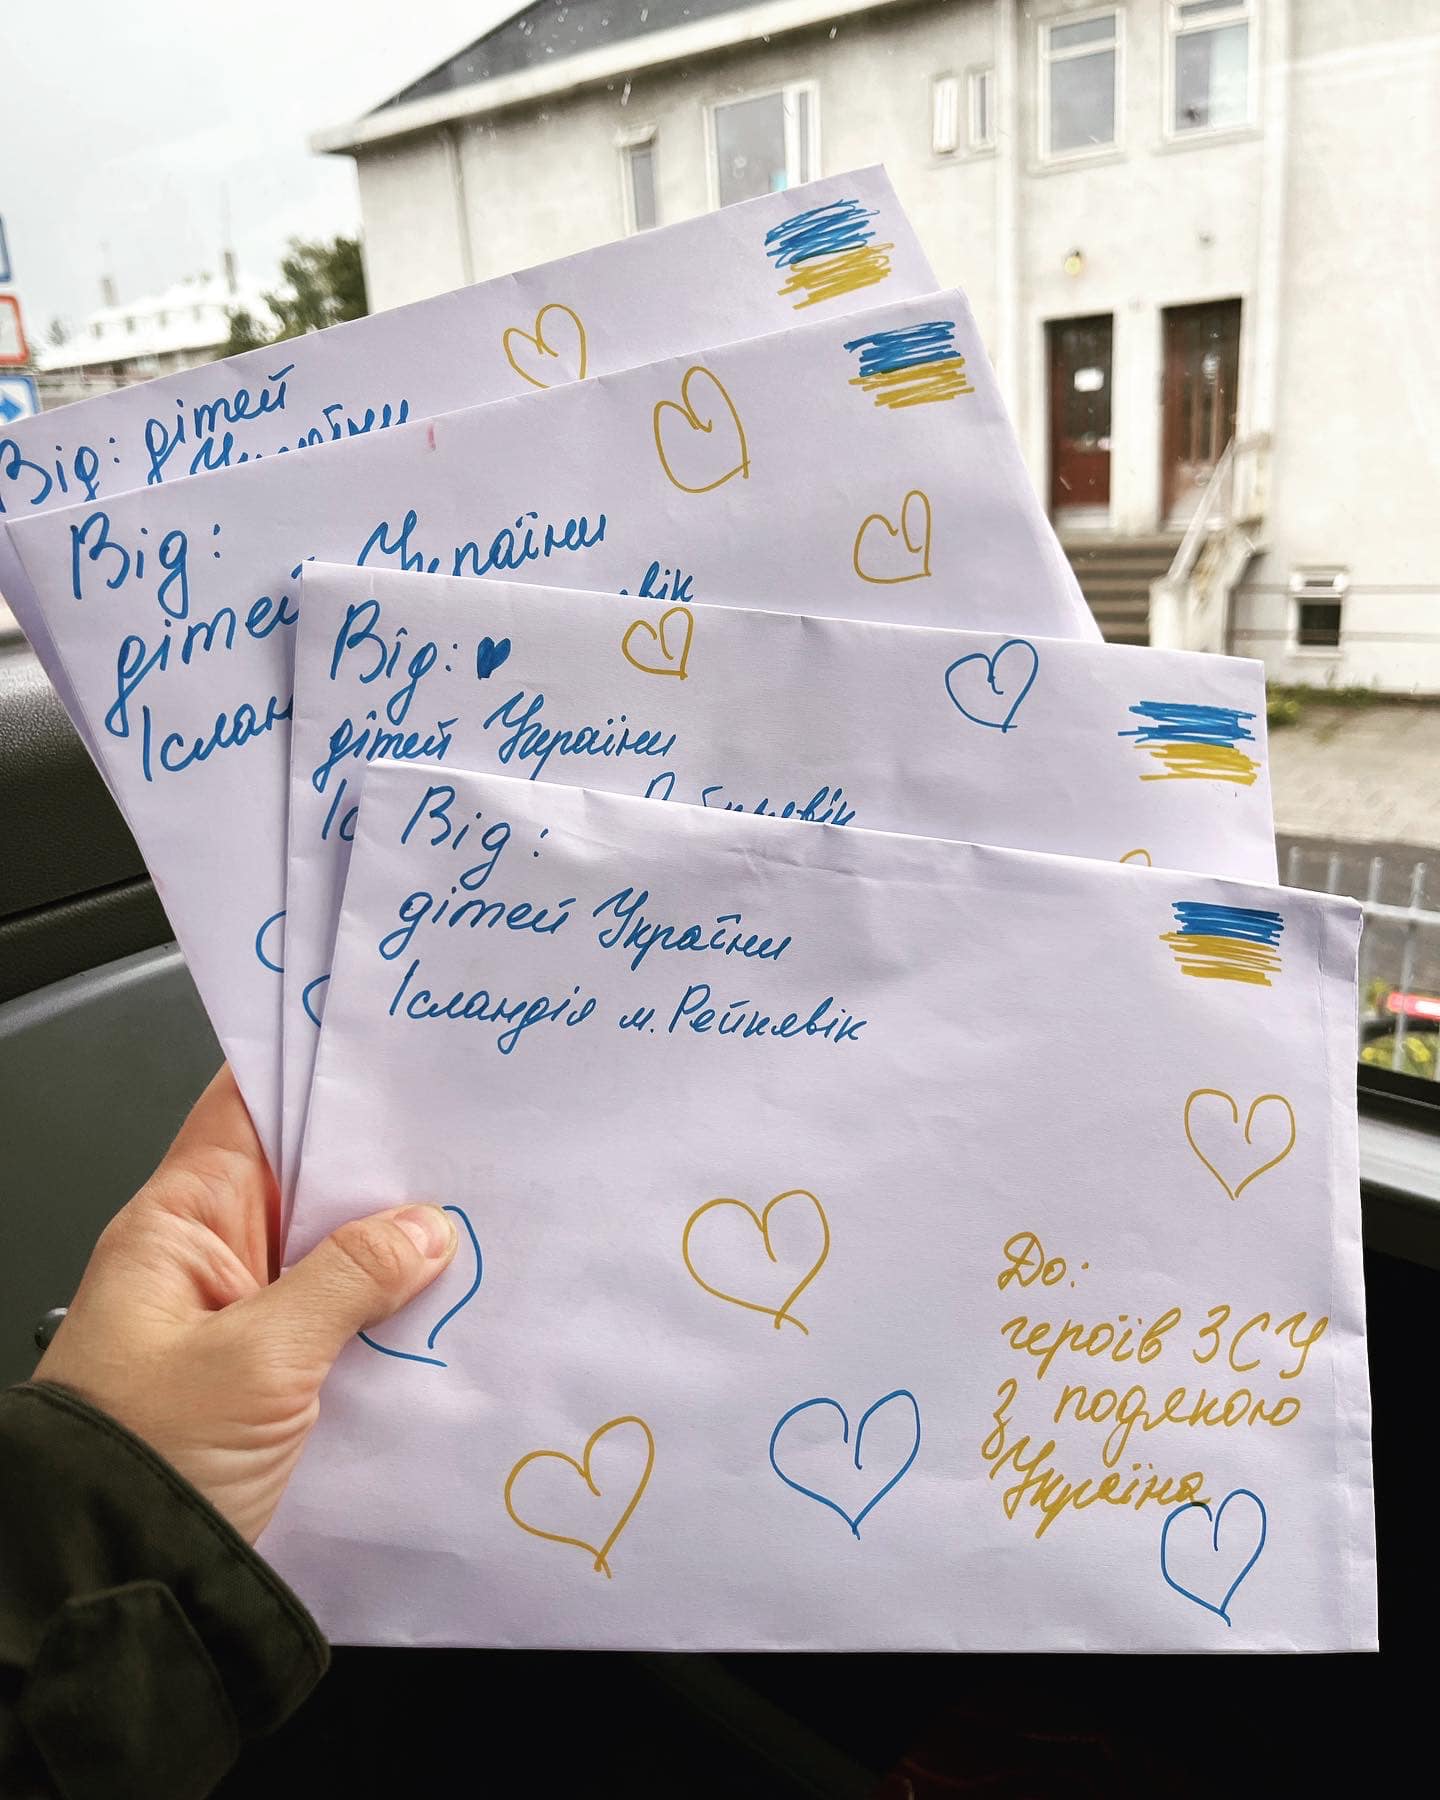 Від: дітей
України
Від:
дітей України
Ісланд
вік
Від:
дітей України
Іс Рейкявік
Від:
дітей України
Ісландія м. Рейкявік
До:
героїв ЗСУ
З подякою
Україна